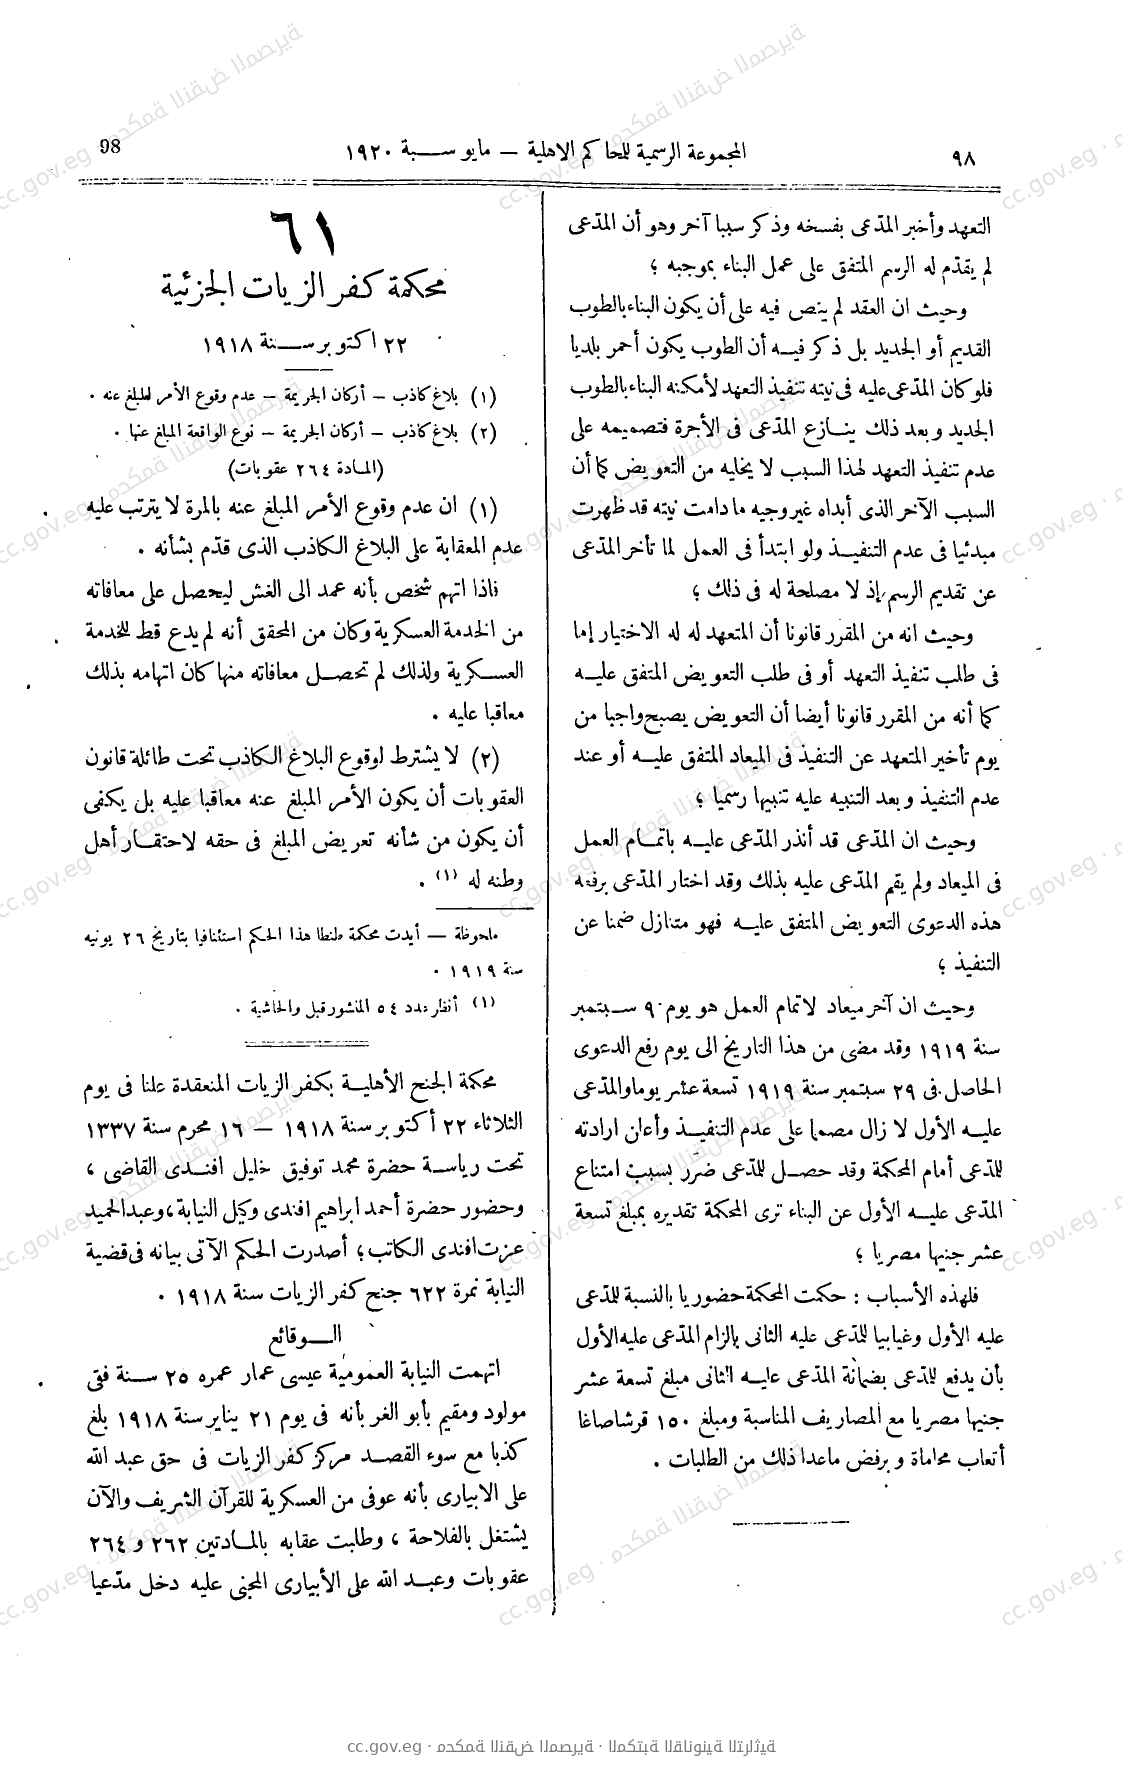 ٩٨
المجموعة الرسمية للمحاكم الاهلية — مايو سنة ١٩٢٠
98
التعهد وأخبر المدّعى بفسخه وذكر سببا آخر وهو أن المدّعى
لم يقدّم له الرسم المتفق على عمل البناء بموجبه ؛
وحيث ان العقد لم ينص فيه على أن يكون البناء بالطوب
القديم أو الجديد بل ذكر فيه أن الطوب يكون أحمر بلديا
فلو كان المدّعى عليه فى نيته تنفيذ التعهد لأمكنه البناء بالطوب
الجديد وبعد ذلك ينازع المدّعى فى الأجرة فتصميمه على
عدم تنفيذ التعهد لهذا السبب لا يخليه من التعويض كما أن
السبب الآخر الذى أبداه غير وجيه ما دامت نيته قد ظهرت
مبدئيا فى عدم التنفيذ ولو ابتدأ فى العمل لما تأخر المدّعى
عن تقديم الرسم إذ لا مصلحة له فى ذلك ؛
وحيث انه من المقرر قانونا أن المتعهد له له الاختيار إما
فى طلب تنفيذ التعهد أو فى طلب التعويض المتفق عليه
كما أنه من المقرر قانونا أيضا أن التعويض يصبح واجبا من
يوم تأخير المتعهد عن التنفيذ فى الميعاد المتفق عليه أو عند
عدم التنفيذ وبعد التنبيه عليه تنبيها رسميا ؛
وحيث ان المدّعى قد أنذر المدّعى عليه باتمام العمل
فى الميعاد ولم يقم المدّعى عليه بذلك وقد اختار المدّعى برفعه
هذه الدعوى التعويض المتفق عليه فهو متنازل ضمنا عن
التنفيذ ؛
وحيث ان آخر ميعاد لاتمام العمل هو يوم ٩ سبتمبر
سنة ١٩١٩ وقد مضى من هذا التاريخ الى يوم رفع الدعوى
الحاصل فى ٢٩ سبتمبر سنة ١٩١٩ تسعة عشر يوما والمدّعى
عليه الأول لا زال مصمما على عدم التنفيذ وأعلن ارادته
للمدّعى أمام المحكمة وقد حصل للمدّعى ضرر بسبب امتناع
المدّعى عليه الأول عن البناء ترى المحكمة تقديره بمبلغ تسعة
عشر جنيها مصريا ؛
فلهذه الأسباب : حكمت المحكمة حضوريا بالنسبة للمدّعى
عليه الأول وغيابيا للمدّعى عليه الثانى بالزام المدّعى عليه الأول
بأن يدفع للمدّعى بضمانة المدّعى عليه الثانى مبلغ تسعة عشر
جنيها مصريا مع المصاريف المناسبة ومبلغ ١٥٠ قرشا صاغا
أتعاب محاماة وبرفض ماعدا ذلك من الطلبات .
٦١
محكمة كفر الزيات الجزئية
٢٢ اكتوبر سنة ١٩١٨
(١) بلاغ كاذب — أركان الجريمة — عدم وقوع الأمر المبلغ عنه .
(٢) بلاغ كاذب — أركان الجريمة — نوع الواقعة المبلغ عنها .
(المادة ٢٦٤ عقوبات)
(١) ان عدم وقوع الأمر المبلغ عنه بالمرة لا يترتب عليه
عدم المعاقبة على البلاغ الكاذب الذى قدّم بشأنه .
فاذا اتهم شخص بأنه عمد الى الغش ليحصل على معافاته
من الخدمة العسكرية وكان من المحقق أنه لم يدع قط للخدمة
العسكرية ولذلك لم تحصل معافاته منها كان اتهامه بذلك
معاقبا عليه .
(٢) لا يشترط لوقوع البلاغ الكاذب تحت طائلة قانون
العقوبات أن يكون الأمر المبلغ عنه معاقبا عليه بل يكفى
أن يكون من شأنه تعريض المبلغ فى حقه لاحتقار أهل
وطنه له (١) .
ملحوظة — أيدت محكمة طنطا هذا الحكم استئنافيا بتاريخ ٢٦ يونيه
سنة ١٩١٩ .
(١) أنظر عدد ٥٤ المنشور قبل والحاشية .
محكمة الجنح الأهلية بكفر الزيات المنعقدة علنا فى يوم
الثلاثاء ٢٢ أكتوبر سنة ١٩١٨ — ١٦ محرم سنة ١٣٣٧
تحت رياسة حضرة محمد توفيق خليل افندى القاضى ،
وحضور حضرة أحمد ابراهيم افندى وكيل النيابة ، وعبد الحميد
عزت افندى الكاتب ؛ أصدرت الحكم الآتى بيانه فى قضية
النيابة نمرة ٦٢٢ جنح كفر الزيات سنة ١٩١٨ .
الوقائع
اتهمت النيابة العمومية عيسى عمار عمره ٢٥ سنة فقى
مولود ومقيم بأبو الغر بأنه فى يوم ٢١ يناير سنة ١٩١٨ بلغ
كذبا مع سوء القصد مركز كفر الزيات فى حق عبد الله
على الابيارى بأنه عوفى من العسكرية للقرآن الشريف والآن
يشتغل بالفلاحة ، وطلبت عقابه بالمادتين ٢٦٢ و ٢٦٤
عقوبات وعبد الله على الأبيارى المجنى عليه دخل مدّعيا
cc.gov.eg · محكمة النقض المصرية · المكتبة القانونية التراثية